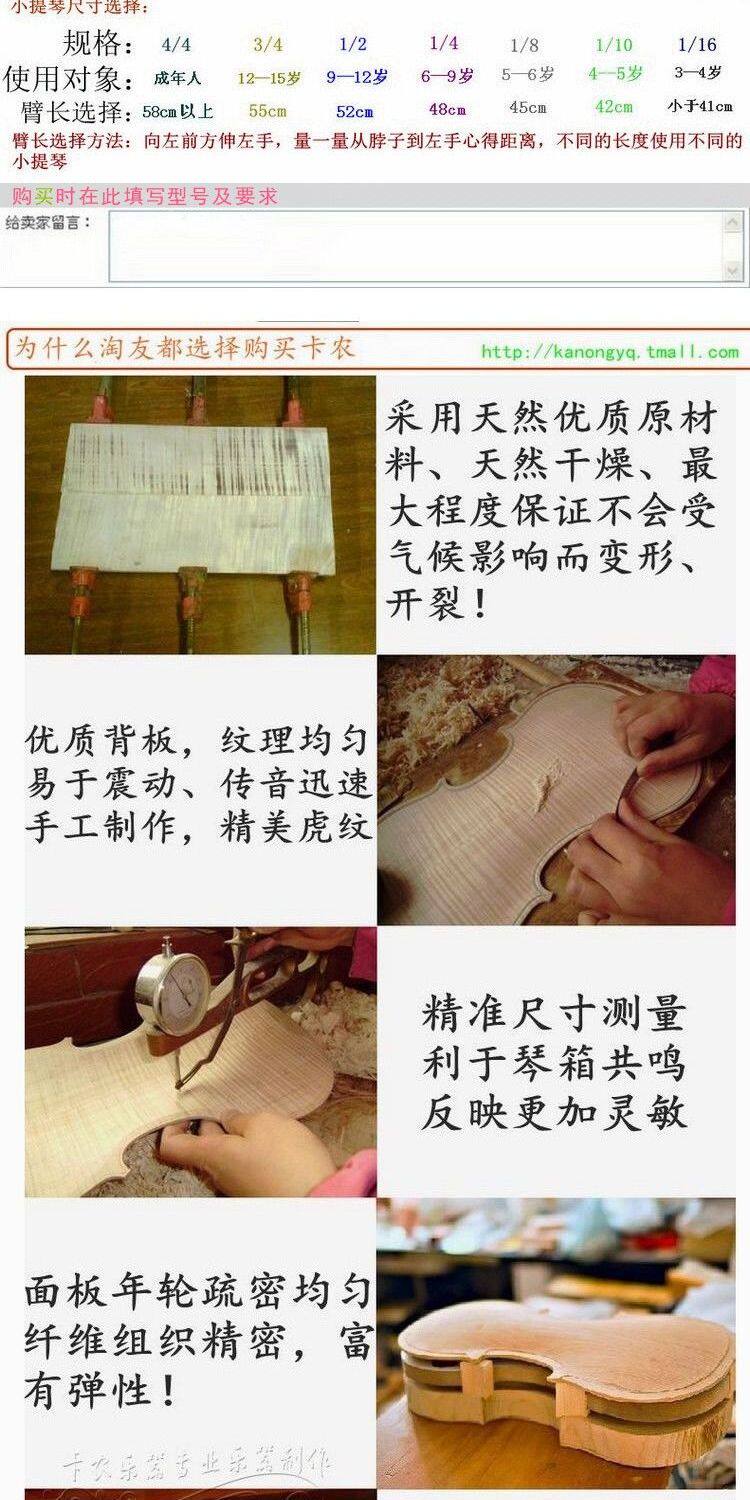 小提琴尺寸选择:
规格: 4/4 3/4 1/2 1/4 1/8 1/10 1/16
使用对象: 成年人 12—15岁 9—12岁 6—9岁 5—6岁 4—5岁 3—4岁
臂长选择: 58cm以上 55cm 52cm 48cm 45cm 42cm 小于41cm
臂长选择方法: 向左前方伸左手，量一量从脖子到左手心得距离，不同的长度使用不同的
小提琴
购买时在此填写型号及要求
给卖家留言:
为什么淘友都选择购买卡农 http://kanongyq.tmall.com
采用天然优质原材
料、天然干燥、最
大程度保证不会受
气候影响而变形、
开裂！
优质背板，纹理均匀
易于震动、传音迅速
手工制作，精美虎纹
精准尺寸测量
利于琴箱共鸣
反映更加灵敏
面板年轮疏密均匀
纤维组织精密，富
有弹性！
卡农乐器专业乐器制作